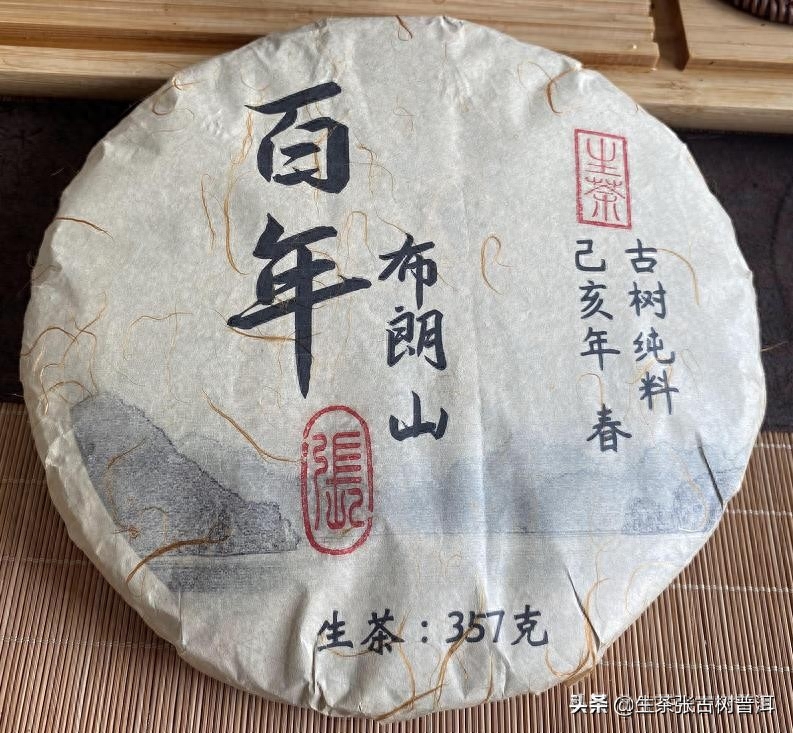 生茶
古树纯料
己亥年 春
布朗山
百年
張
生茶：357克
头条 @生茶张古树普洱